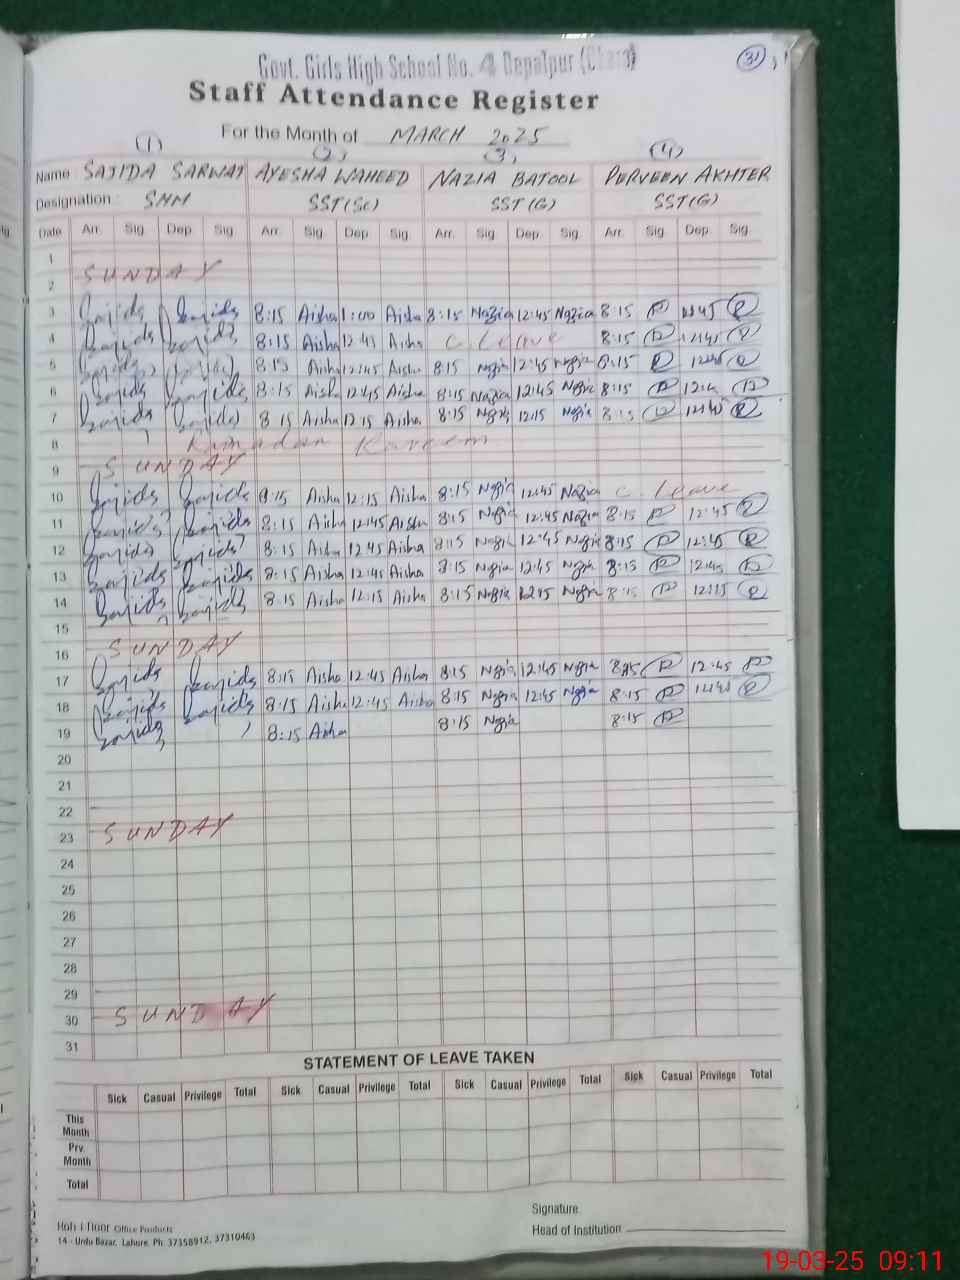 Govt. Girls High School No. 4 Depalpur (Okara)
31
Staff Attendance Register
For the Month of MARCH 2025
(1) (2) (3) (4)
Name : SAJIDA SARWAT AYESHA WAHEED NAZIA BATOOL PERVEEN AKHTER
Designation : SHM SST(Sc) SST(G) SST(G)
Date Arr. Sig. Dep. Sig. Arr. Sig. Dep. Sig. Arr. Sig. Dep. Sig. Arr. Sig. Dep. Sig.
1
2 SUNDAY
3 Sajida Sajida 8:15 Aisha 1:00 Aisha 8:15 Nazia 12:45 Nazia 8:15
4 Sajida Sajida 8:15 Aisha 12:45 Aisha C. Leave 8:15 12:45
5 Sajida Sajida 8:15 Aisha 12:45 Aisha 8:15 Nazia 12:45 Nazia 8:15 12:45
6 Sajida Sajida 8:15 Aisha 12:45 Aisha 8:15 Nazia 12:45 Nazia 8:15
7 Sajida Sajida 8:15 Aisha 12:15 Aisha 8:15 Nazia 12:15 Nazia 8:15
8 Ramadan Kareem
9 SUNDAY
10 Sajida Sajida 8:15 Aisha 12:15 Aisha 8:15 Nazia 12:45 Nazia C. Leave
11 Sajida Sajida 8:15 Aisha 12:45 Aisha 8:15 Nazia 12:45 Nazia 8:15 12:45
12 Sajida Sajida 8:15 Aisha 12:45 Aisha 8:15 Nazia 12:45 Nazia 8:15 12:45
13 Sajida Sajida 8:15 Aisha 12:45 Aisha 8:15 Nazia 12:45 Nazia 8:15 12:45
14 Sajida Sajida 8:15 Aisha 12:15 Aisha 8:15 Nazia 12:15 Nazia 8:15 12:15
15
16 SUNDAY
17 Sajida Sajida 8:15 Aisha 12:45 Aisha 8:15 Nazia 12:45 Nazia 8:15 12:45
18 Sajida Sajida 8:15 Aisha 12:45 Aisha 8:15 Nazia 12:45 Nazia 8:15 12:45
19 Sajida 8:15 Aisha 8:15 Nazia 8:15
20
21
22
23 SUNDAY
24
25
26
27
28
29
30 SUNDAY
31
STATEMENT OF LEAVE TAKEN
Sick Casual Privilege Total Sick Casual Privilege Total Sick Casual Privilege Total Sick Casual Privilege Total
This Month
Prv. Month
Total
Signature
Head of Institution
Office Products
14 - Urdu Bazar, Lahore. Ph: 37358912, 37310463
19-03-25 09:11